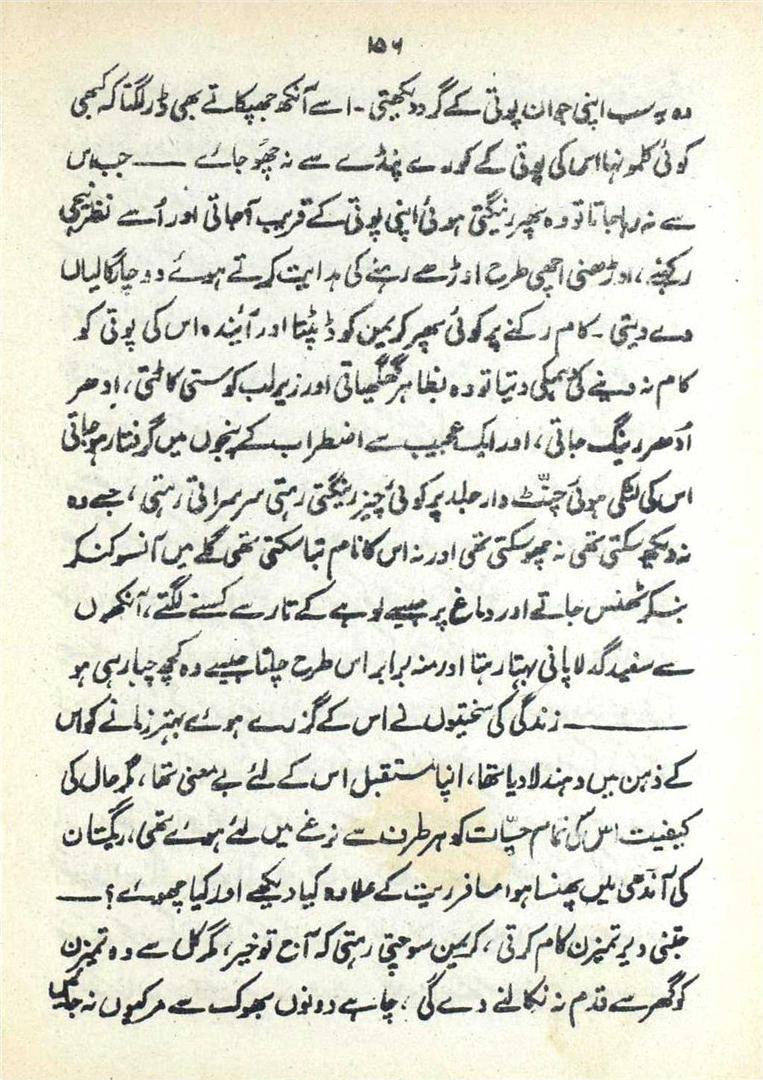 ۱۵۶
وہ یہ سب اپنی جوان پوتی کے گرد دیکھتی ۔ اسے آنکھ جھپکاتے بھی ڈر لگتا کہ کبھی
کوئی کلمونہا اس کی پوتی کے کورے پنڈے سے نہ چھُو جائے ــــ جب اس
سے نہ رہا جاتا تو وہ پھر رینگتی ہوئی اپنی پوتی کے قریب آجاتی اور اُسے نظر نیچی
رکھنے، اوڑھنی اچھی طرح اوڑھے رہنے کی ہدایت کرتے ہوئے دو چار گالیاں
دے دیتی ۔ کام رکنے پر کوئی پھر کریمن کو ڈپٹتا اور آئندہ اس کی پوتی کو
کام نہ دینے کی دھمکی دیتا تو وہ بظاہر گھگھیاتی اور زیر لب کوستی کاٹتی، ادھر
اُدھر رینگ جاتی، اور ایک عجیب سے اضطراب کے پنجوں میں گرفتار ہو جاتی
اس کی لٹکی ہوئی چنٹ دار جلد پر کوئی چیز رینگتی رہتی سرسراتی رہتی، جسے وہ
نہ دیکھ سکتی تھی نہ چھو سکتی تھی اور نہ اس کا نام بتا سکتی تھی گلے میں آنسو کنکر
بنکر ٹھنس جاتے اور دماغ پر جیسے لوہے کے تار سے کسنے لگتے، آنکھوں
سے سفید گدلا پانی بہتا رہتا اور منہ برابر اس طرح چلتا جیسے وہ کچھ چبا رہی ہو
ــــــــ زندگی کی سختیوں نے اس کے گزرے ہوئے بہتر زمانے کو اس
کے ذہن میں دھندلا دیا تھا، اپنا مستقبل اس کے لئے بے معنی تھا، مگر حال کی
کیفیت اس کی تمام حسیّات کو ہر طرف سے نرغے میں لئے ہوئے تھی، ریگستان
کی آندھی میں پھنسا ہوا مسافر ریت کے علاوہ کیا دیکھے اور کیا چھوئے؟ ــــ
جتنی دیر تمیزن کام کرتی، کریمن سوچتی رہتی کہ آج تو خیر، مگر کل سے وہ تمیزن
کو گھر سے قدم نہ نکالنے دے گی، چاہے دونوں بھوک سے مر کیوں نہ جائیں